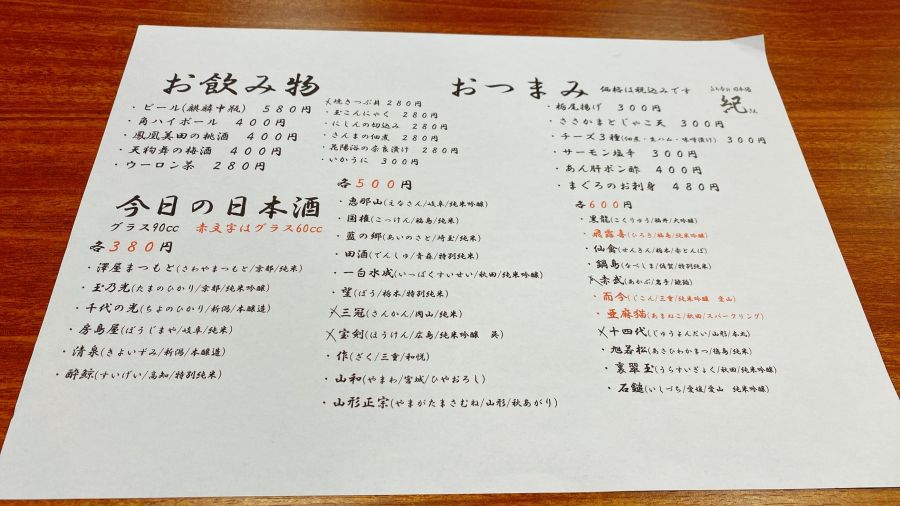 お飲み物
・ビール(麒麟中瓶) 580円
・角ハイボール 400円
・鳳凰美田の桃酒 400円
・天狗舞の梅酒 400円
・ウーロン茶 280円
今日の日本酒
グラス90cc 赤文字はグラス60cc
各380円
・澤屋まつもと(さわやまつもと/京都/純米)
・玉乃光(たまのひかり/京都/純米吟醸)
・千代の光(ちよのひかり/新潟/本醸造)
・房島屋(ぼうじまや/岐阜/純米)
・清泉(きよいずみ/新潟/本醸造)
・酔鯨(すいげい/高知/特別純米)
おつまみ 価格は税込みです
・焼きつぶ貝 280円
・玉こんにゃく 280円
・にしんの切込み 280円
・さんまの佃煮 280円
・花陽浴の奈良漬け 280円
・いかうに 300円
・栃尾揚げ 300円
・ささかまとじゃこ天 300円
・チーズ3種(佃煮・生ハム・味噌漬け) 300円
・サーモン塩辛 300円
・あん肝ポン酢 400円
・まぐろのお刺身 480円
各500円
・恵那山(えなさん/岐阜/純米吟醸)
・国権(こっけん/福島/純米)
・藍の郷(あいのさと/埼玉/純米)
・田酒(でんしゅ/青森/特別純米)
・一白水成(いっぱくすいせい/秋田/純米吟醸)
・望(ぼう/栃木/特別純米)
・三冠(さんかん/岡山/純米)
・宝剣(ほうけん/広島/純米吟醸
・作(ざく/三重/和悦)
・山和(やまわ/宮城/ひやおろし)
・山形正宗(やまがたまさむね/山形/秋あがり)
各600円
・黒龍(こくりゅう/福井/大吟醸)
・飛露喜(ひろき/福島/純米吟醸)
・仙禽(せんきん/栃木/赤とんぼ)
・鍋島(なべしま/佐賀/特別純米)
・赤武(あかぶ/岩手/
・而今(じこん/三重/純米吟醸 愛山)
・亜麻猫(あまねこ/秋田/スパークリング)
・十四代(じゅうよんだい/山形/本丸)
・旭若松(あさひわかまつ/徳島/純米)
・裏翠玉(うらすいぎょく/秋田/純米吟醸)
・石鎚(いしづち/愛媛/愛山 純米吟醸)